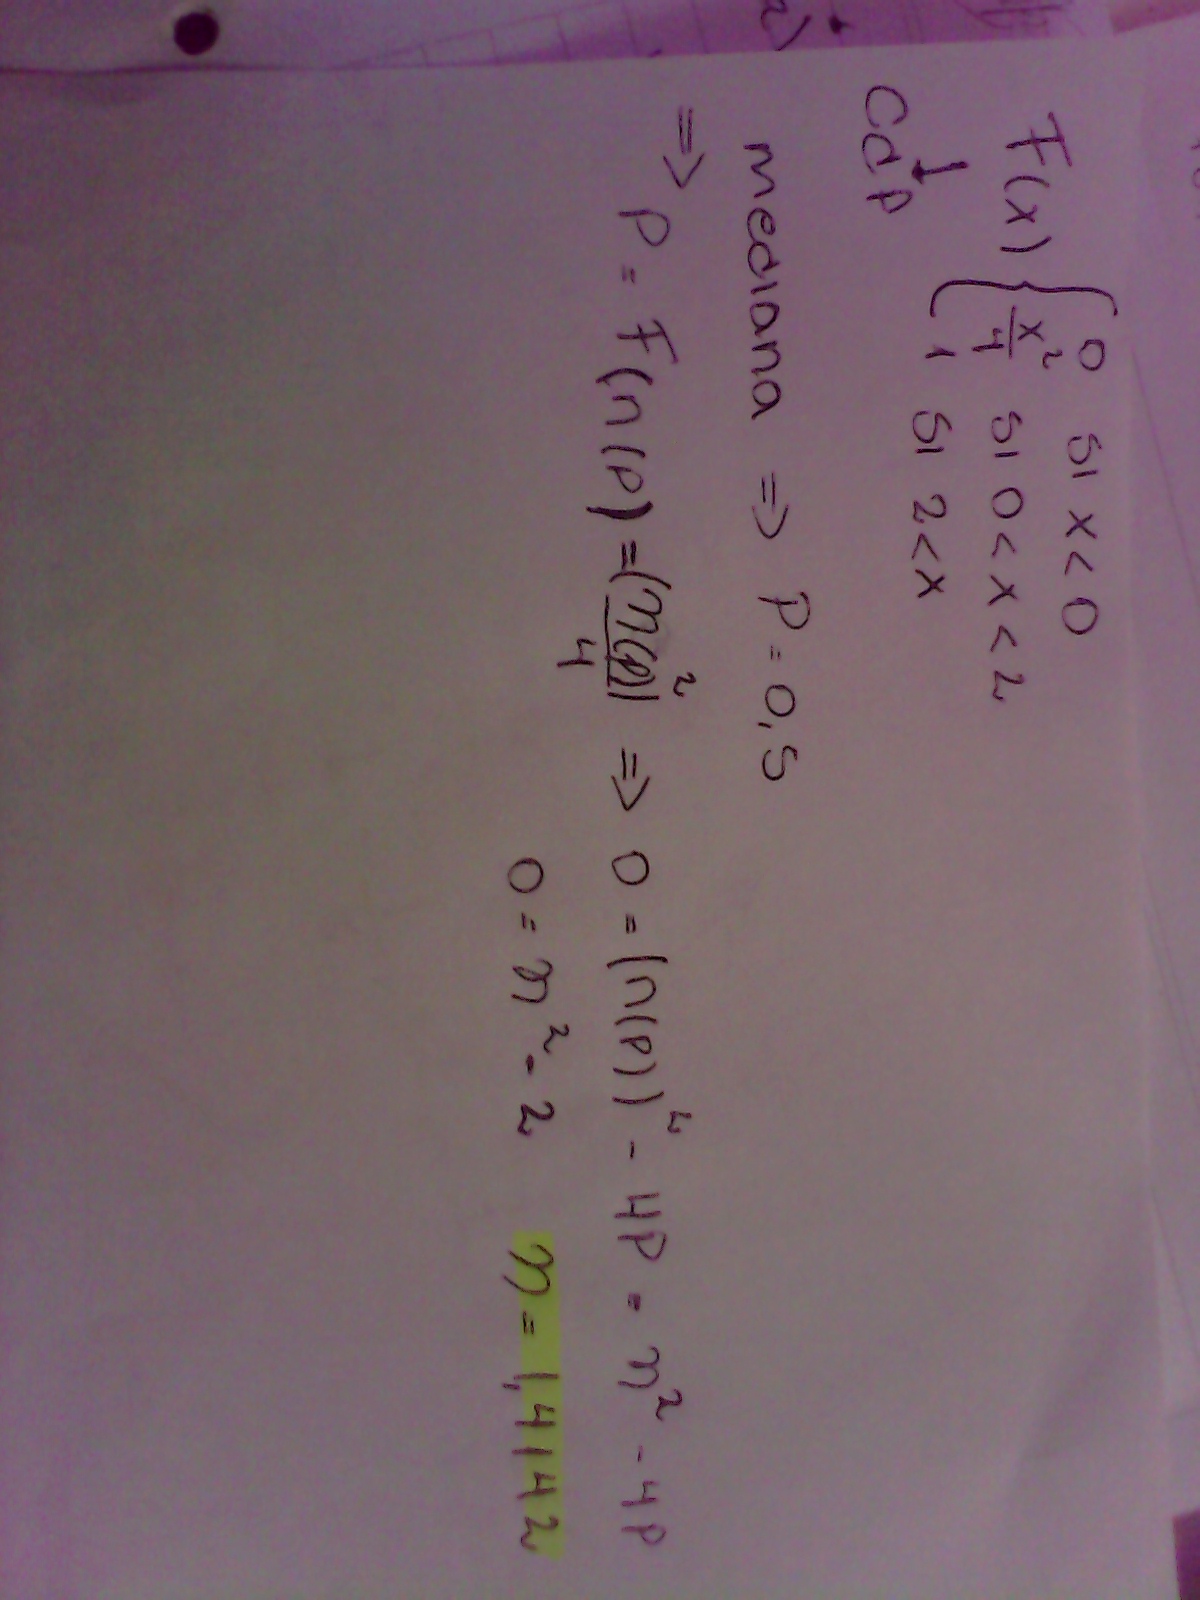 F(x) { 0 si x < 0
x²/4 si 0 < x < 2
1 si 2 < x
↓
Cdp
mediana => P = 0,5
=> P = F(n(p)) = (n(p))²/4 => 0 = (n(p))² - 4P = n² - 4P
0 = n² - 2 n = 1,4142